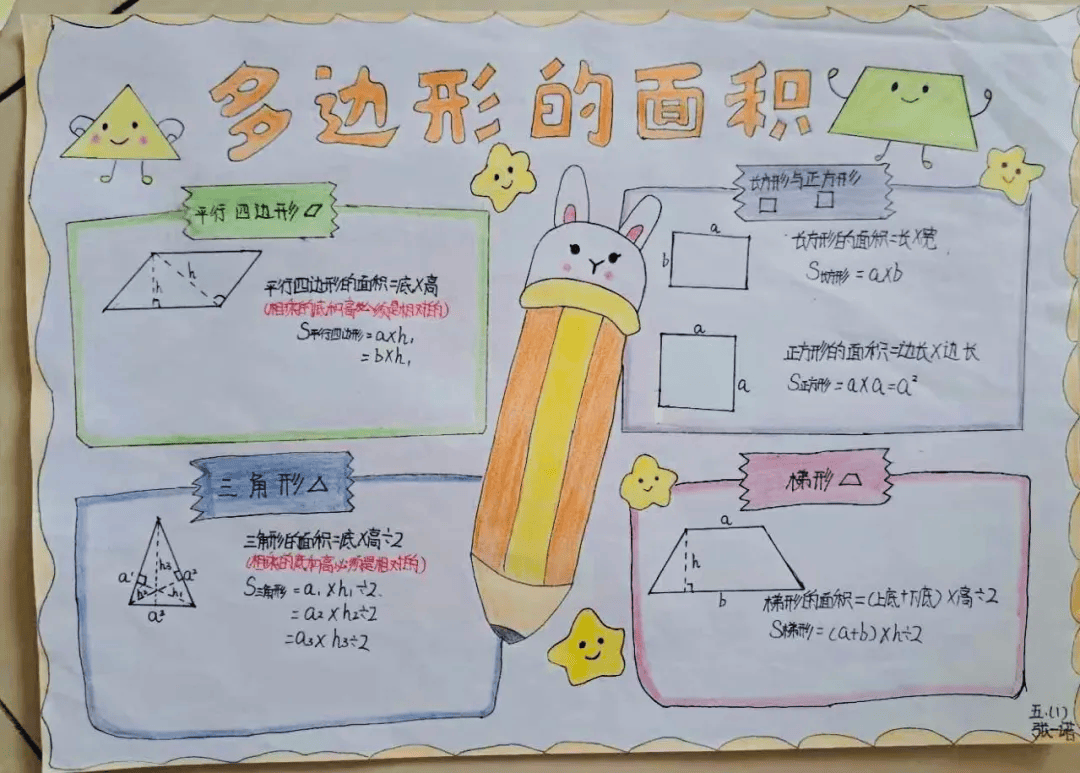 多边形的面积
平行四边形
h
h
平行四边形的面积=底×高
(相乘的底和高必须是相对的)
S平行四边形=a×h₁
=b×h₁
长方形与正方形
a
b
长方形的面积=长×宽
S长方形=a×b
a
a
正方形的面积=边长×边长
S正方形=a×a=a²
三角形
h3
a'
a²
h²
h₁
a²
三角形的面积=底×高÷2
(相乘的底和高必须是相对的)
S三角形=a₁×h₁÷2
=a₂×h₂÷2
=a₃×h₃÷2
梯形
a
h
b
梯形的面积=(上底+下底)×高÷2
S梯形=(a+b)×h÷2
五.(1)
张一诺